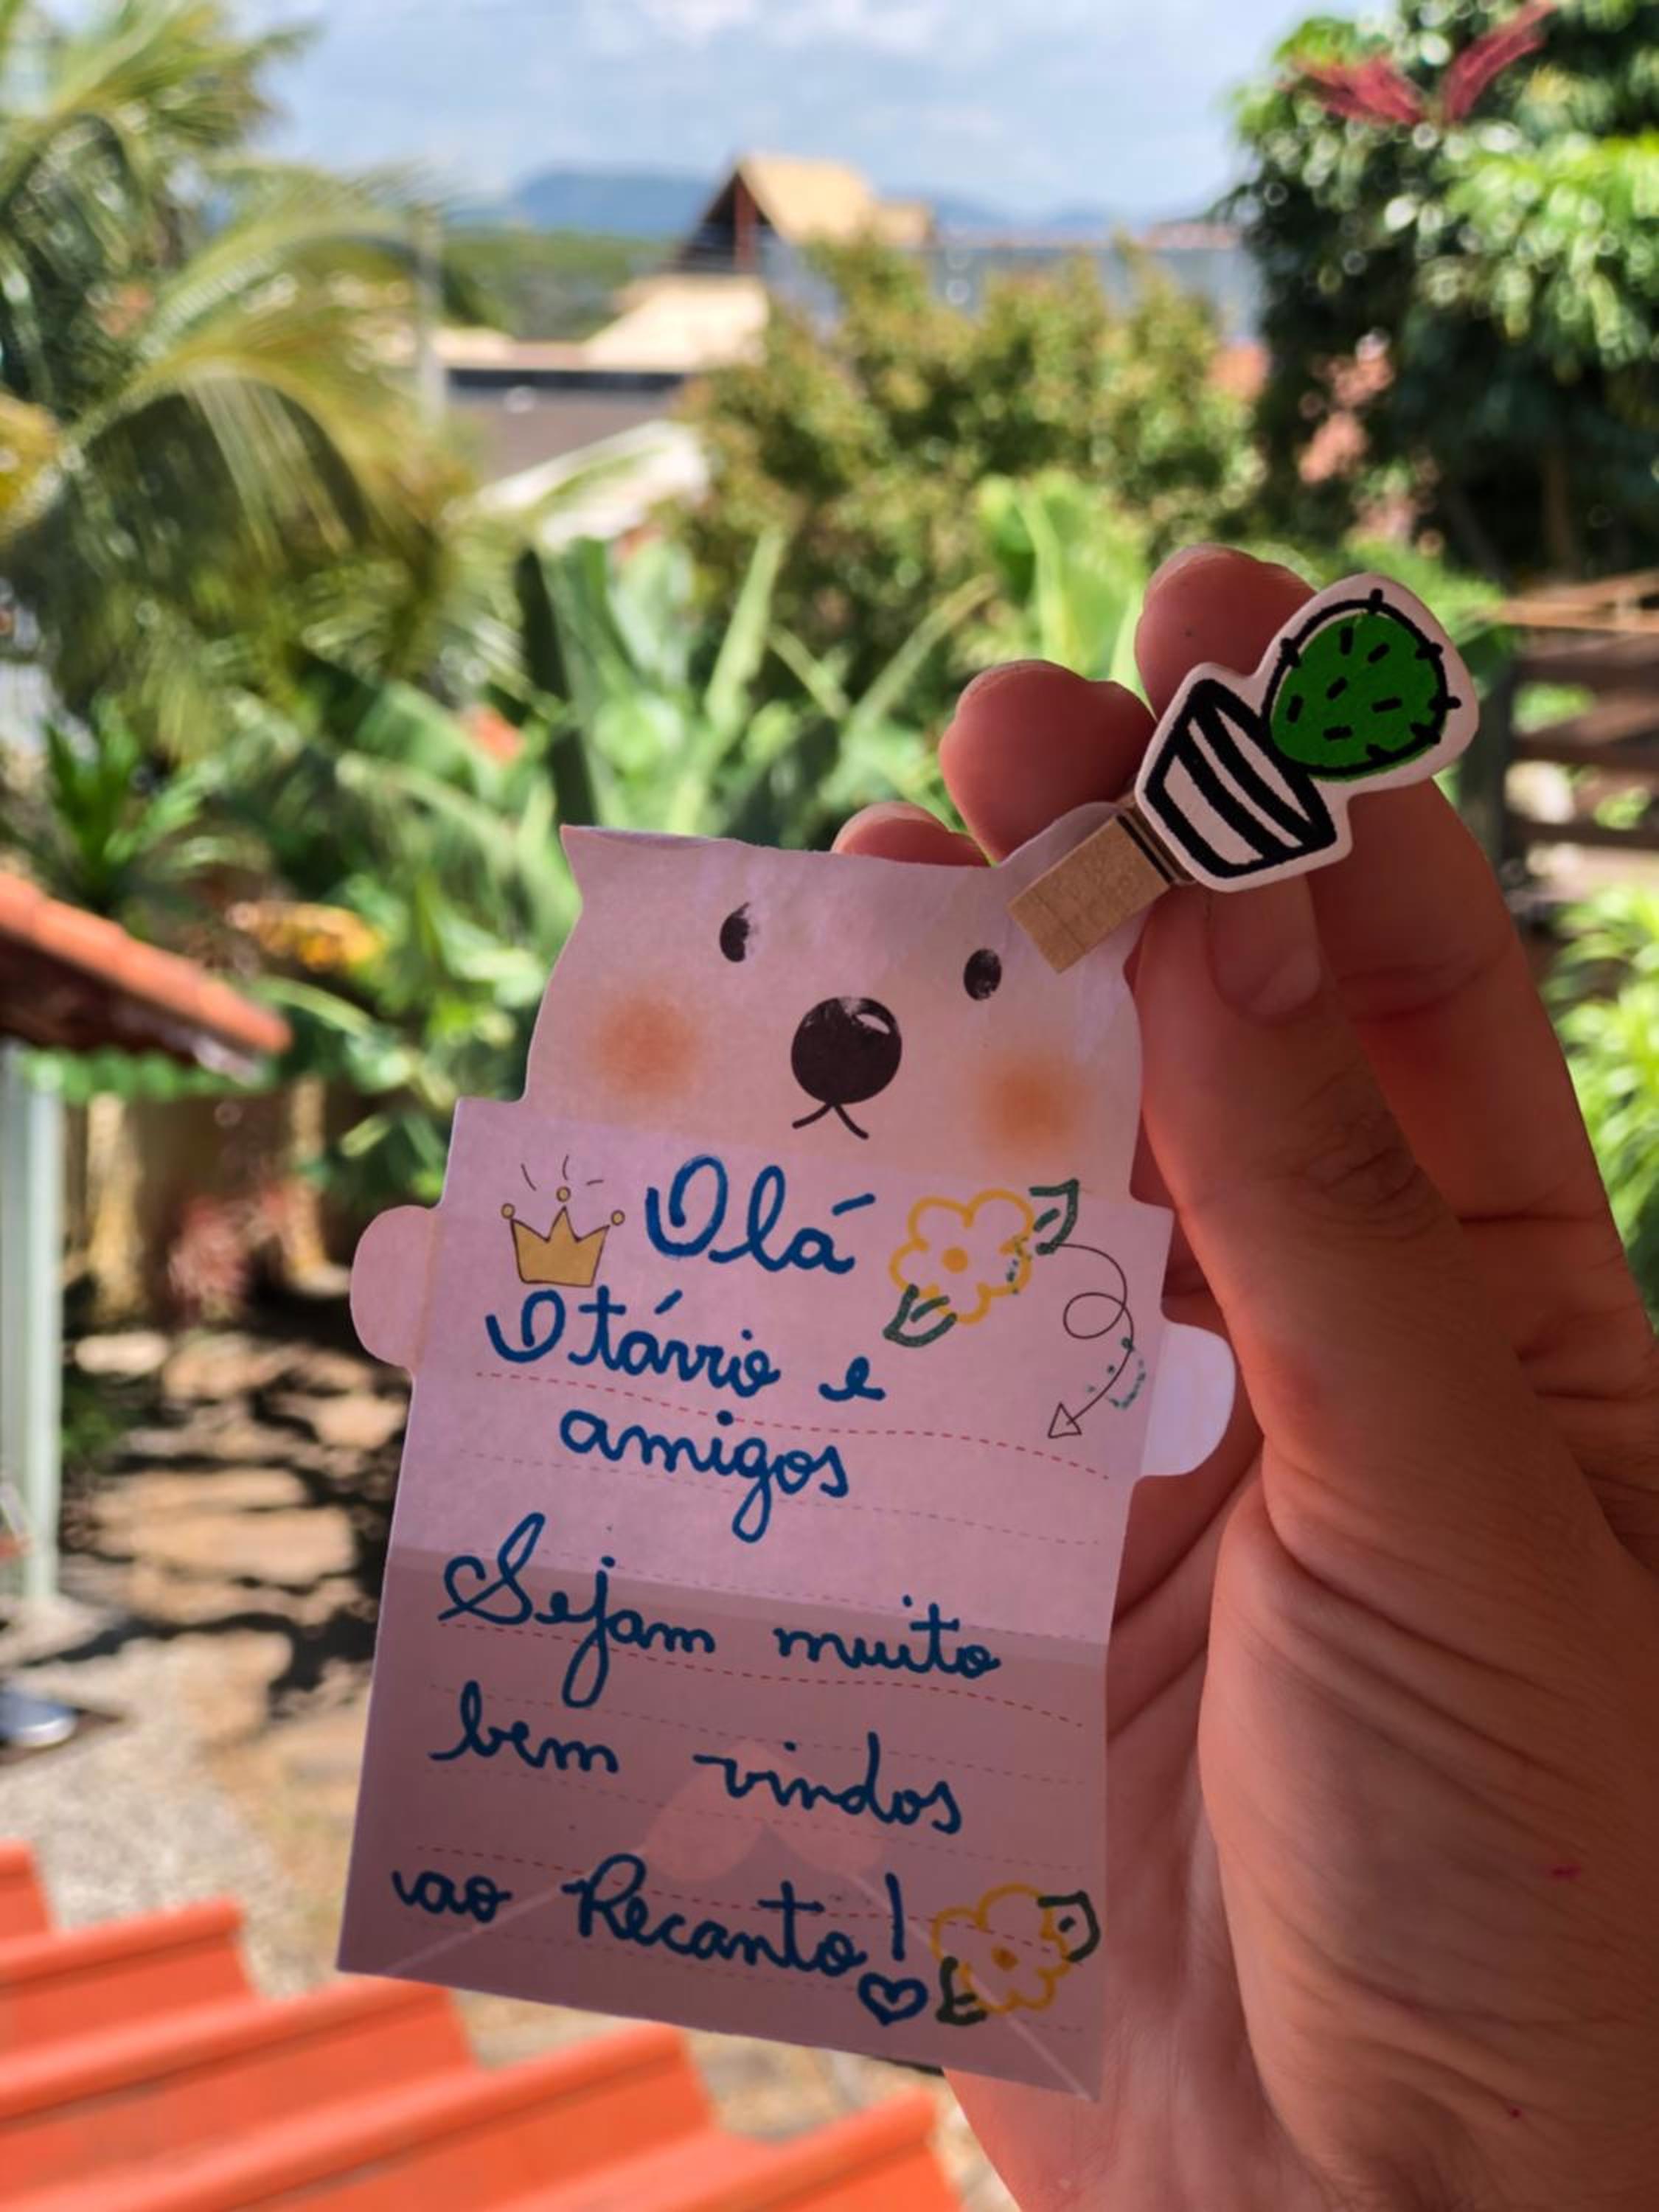 Olá
Otávio e
amigos
Sejam muito
bem vindos
ao Recanto!